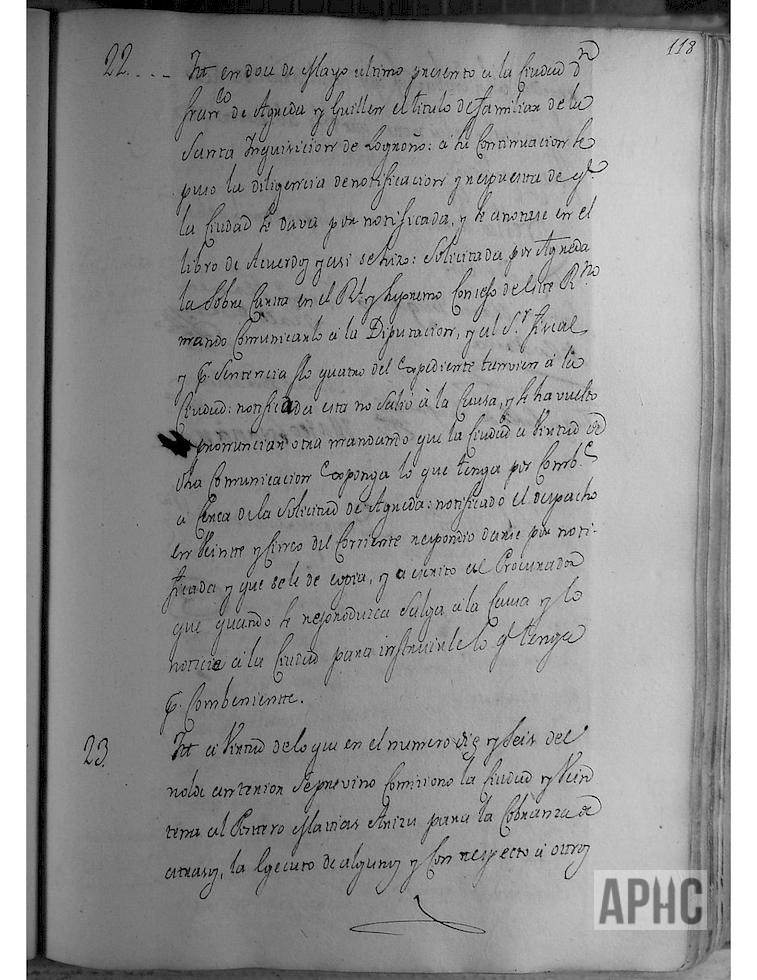 118
22.... Itt en doze de Mayo ultimo presento a la Ciudad Dn
Franco de Agueda y Guillen el titulo de familiar de la
Santa Inquisicion de Logroño: a su Continuacion se
puso la diligencia de notificacion y respuesta de qe
la Ciudad se dava por notificada, y se anotase en el
libro de Acuerdos y asi se hizo: Solicitada por Agueda
la Sobre Carta en el Rl. y Supremo Consejo de este Rno
mando Comunicarlo a la Diputacion, y al Sr. fiscal
y pr. Sentencia flo quatro del expediente tanvien a la
Ciudad: notificada esta no Salio a la Causa, y se ha vuelto
a pronunciar otra mandando que la Ciudad a Virtud de
una Comunicacion exponga lo que tenga por Combte
a cerca de la Solicitud de Agueda: notificado el despacho
en Veintte y Cinco del Corriente respondio darse por noti-
ficada y que se le de copia, y a escrito al Procurador
que quando se reproduzca Salga a la Causa y lo
noticie a la Ciudad para instruirle lo qe tenga
pr. Combenientte.
23 Itt a Virtud de lo que en el numero diez y seis del
nolde anterior se previno Comisiono la Ciudad y Vein
tena al Portero Matias Ariza para la Cobranza de
atrasos, la Egecuto de algunos y Con respecto a otros
APHC